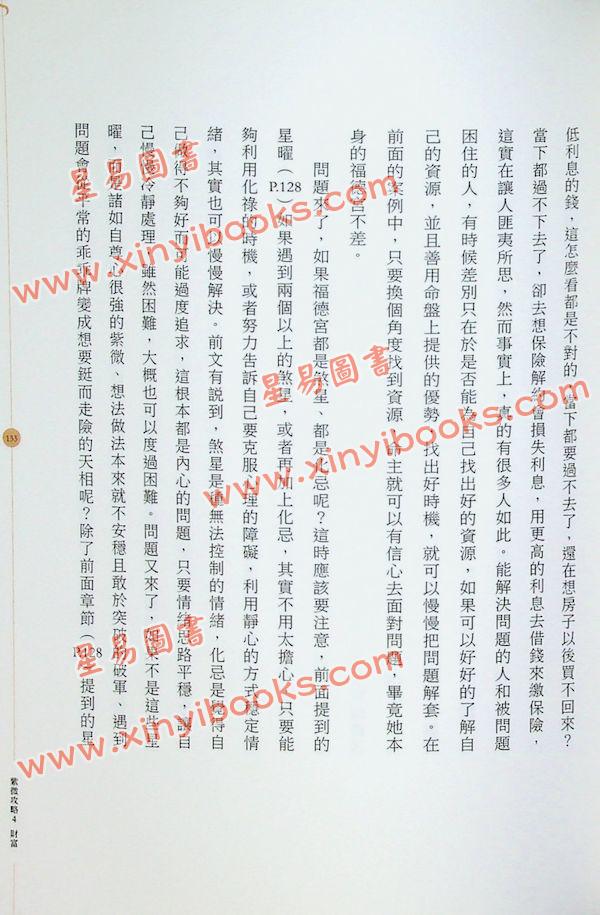 低利息的錢，這怎麼看都是不對的，當下都要過不去了，還在想房子以後買不回來？
當下都過不下去了，卻去想保險解約會損失利息，用更高的利息去借錢來繳保險，
這實在讓人匪夷所思，然而事實上，真的有很多人如此。能解決問題的人和被問題
困住的人，有時候差別只在於是否能為自己找出好的資源，如果可以好好的了解自
己的資源，並且善用命盤上提供的優勢，找出好時機，就可以慢慢把問題解套。在
前面的案例中，只要換個角度找到資源，命主就可以有信心去面對問題，畢竟她本
身的福德宮不差。
問題來了，如果福德宮都是煞星、都是化忌呢？這時應該要注意，前面提到的
星曜（P.128）如果遇到兩個以上的煞星，或者再加上化忌，其實不用太擔心，只要能
夠利用化祿的時機，或者努力告訴自己要克服心理的障礙，利用靜心的方式穩定情
緒，其實也可以慢慢解決。前文有說到，煞星是種無法控制的情緒，化忌是覺得自
己做得不夠好而可能過度追求，這根本都是內心的問題，只要情緒思路平穩，讓自
己慢慢冷靜處理，雖然困難，大概也可以度過困難。問題又來了，如果不是這些星
曜，而是諸如自尊心很強的紫微、想法做法本來就不安穩且敢於突破的破軍、遇到
問題會從平常的乖乖牌變成想要鋌而走險的天相呢？除了前面章節（P.128）提到的星
133
紫微攻略4 財富
星易圖書
www.xinyibooks.com
星易圖書
www.xinyibooks.com
星易圖書
www.xinyibooks.com